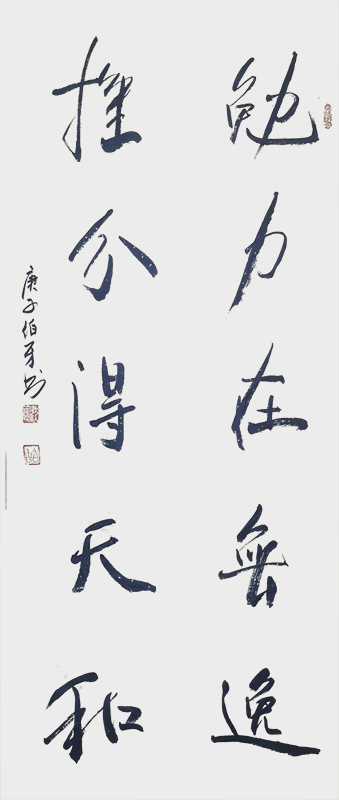 勉力在無逸
推分得天和
庚子伯牙书